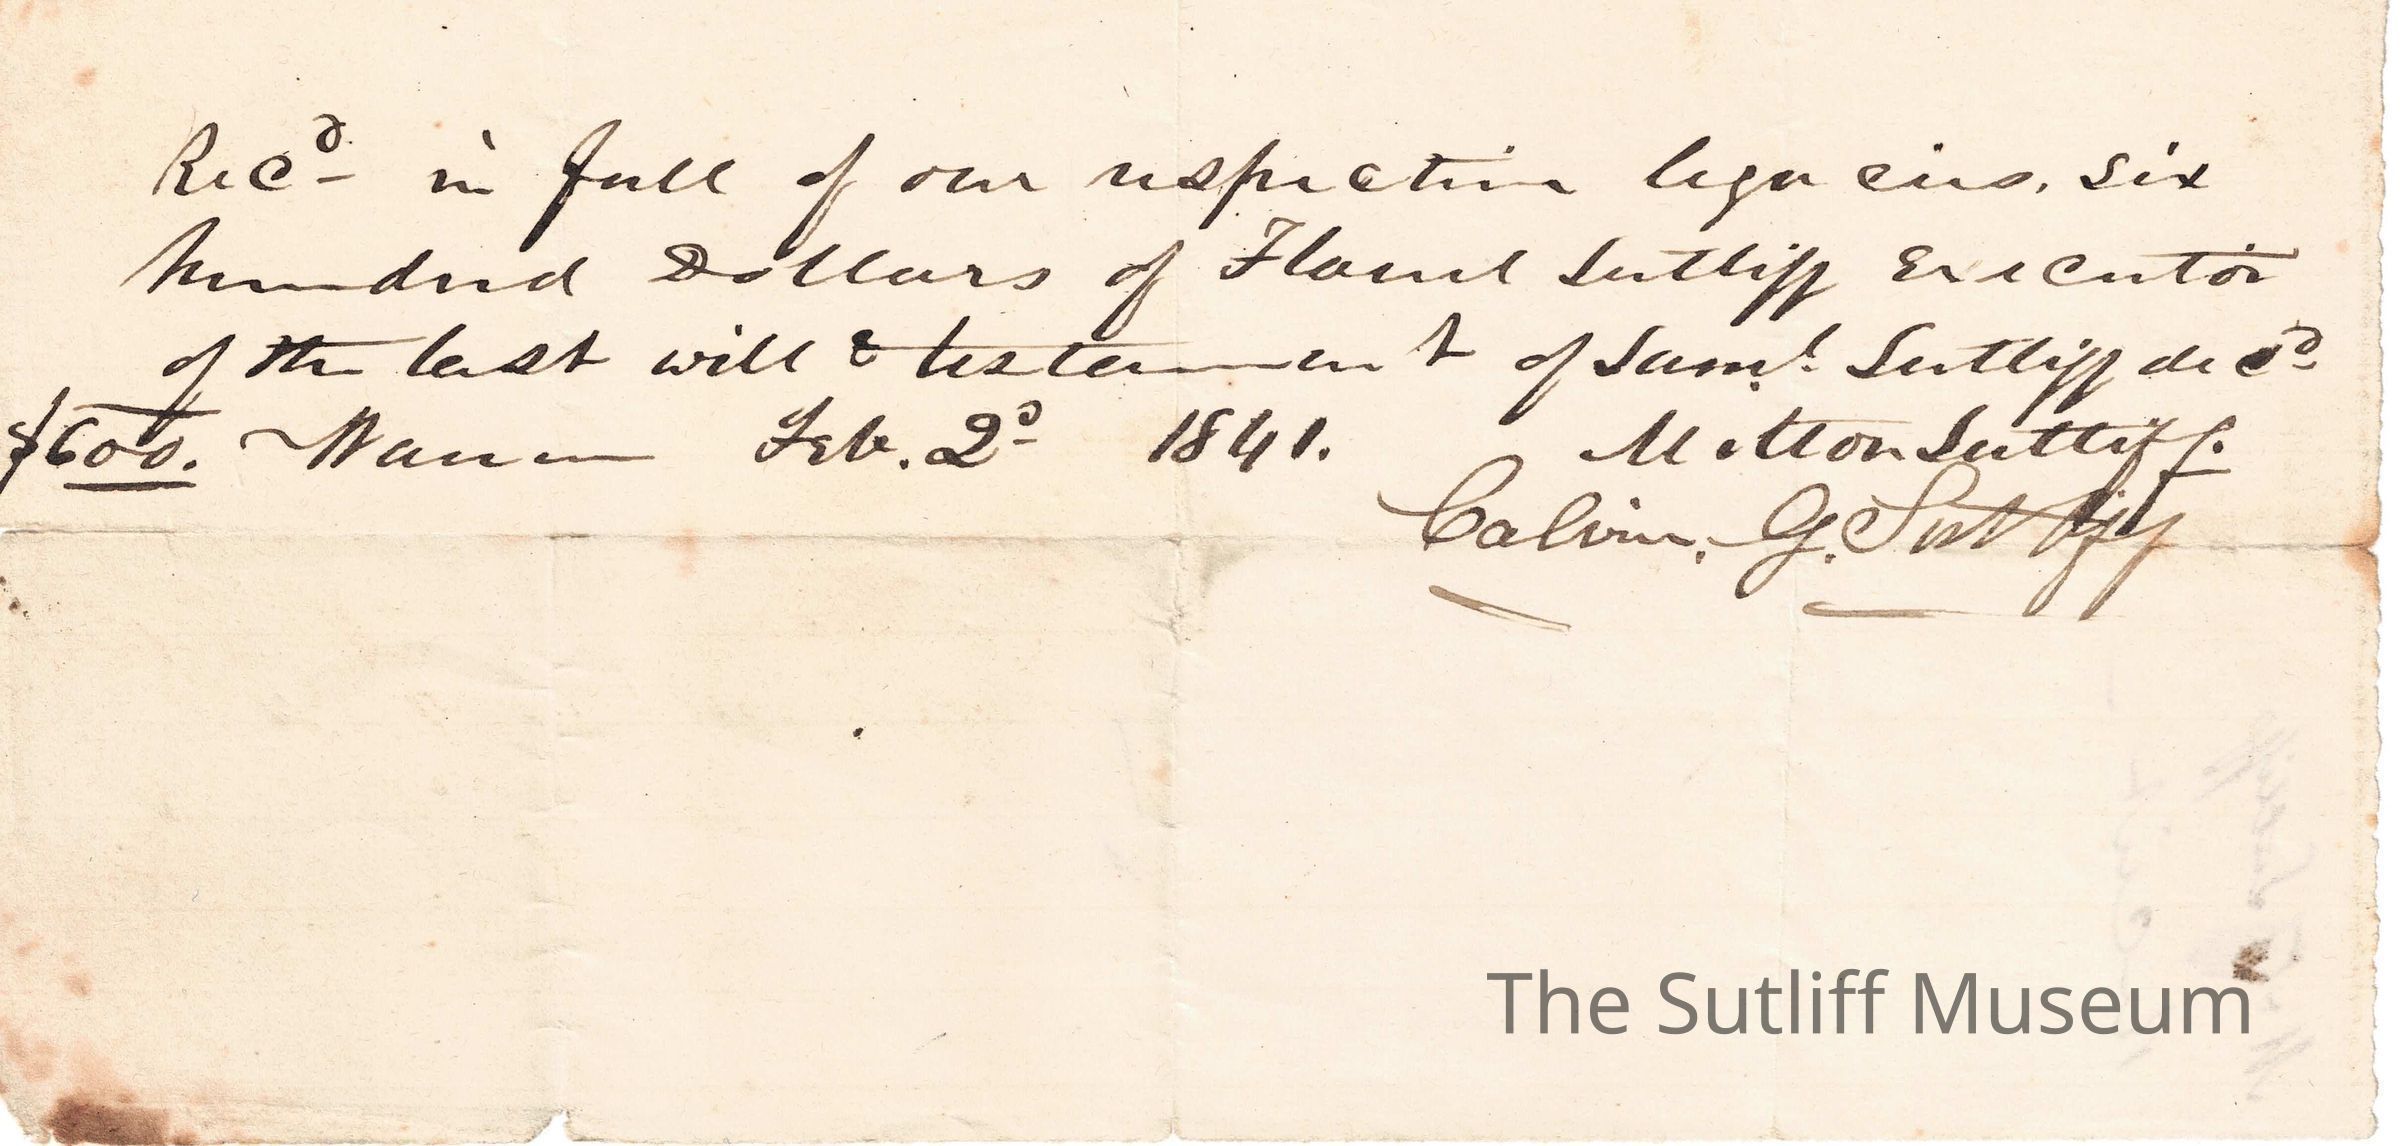 Recd in full of our respective legacies. Six
hundred Dollars of Flavel Sutliff Executor
of the last will & testament of Saml. Sutliff decd
$600. Warren Feb. 2d 1841. Milton Sutliff.
Calvin. G. Sutliff
The Sutliff Museum